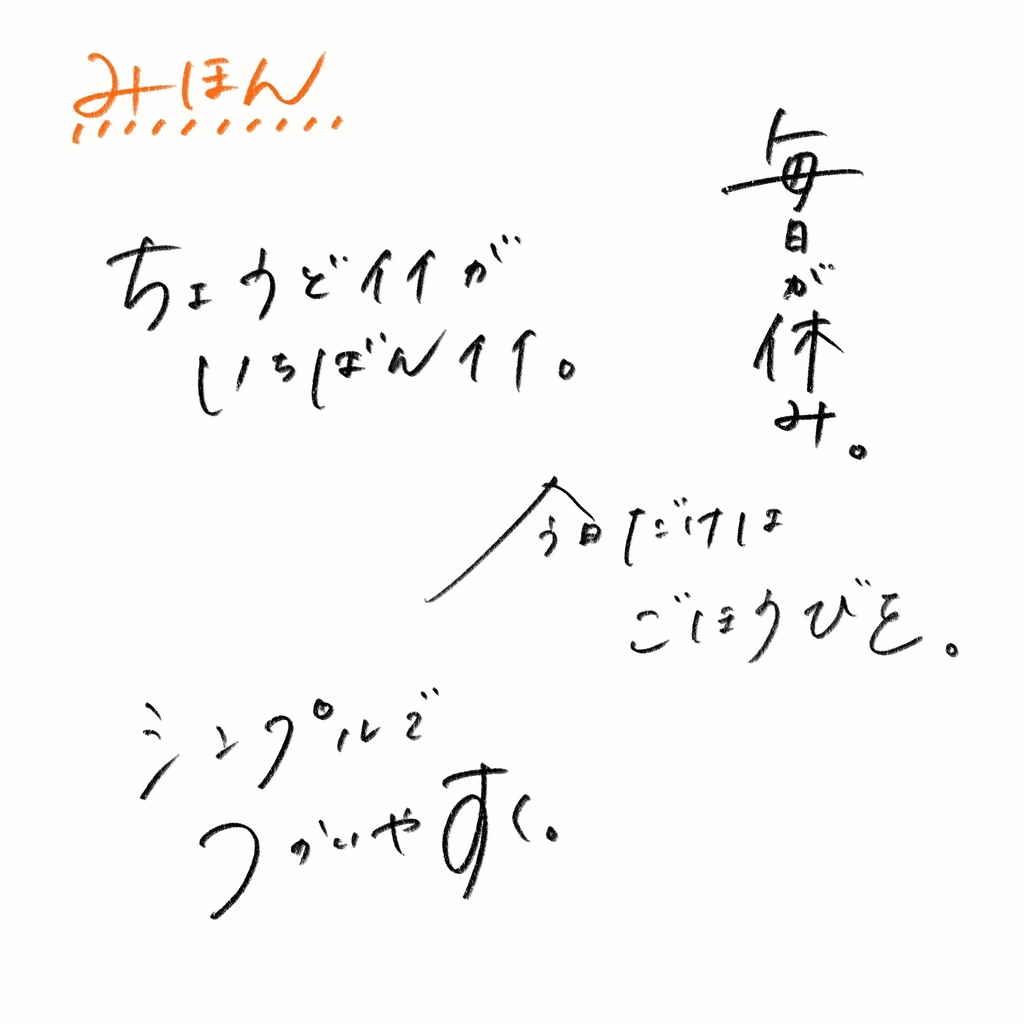 みほん
毎日が休み。
ちょうどイイが
いちばんイイ。
今日だけは
ごほうびを。
シンプルで
つかいやすく。